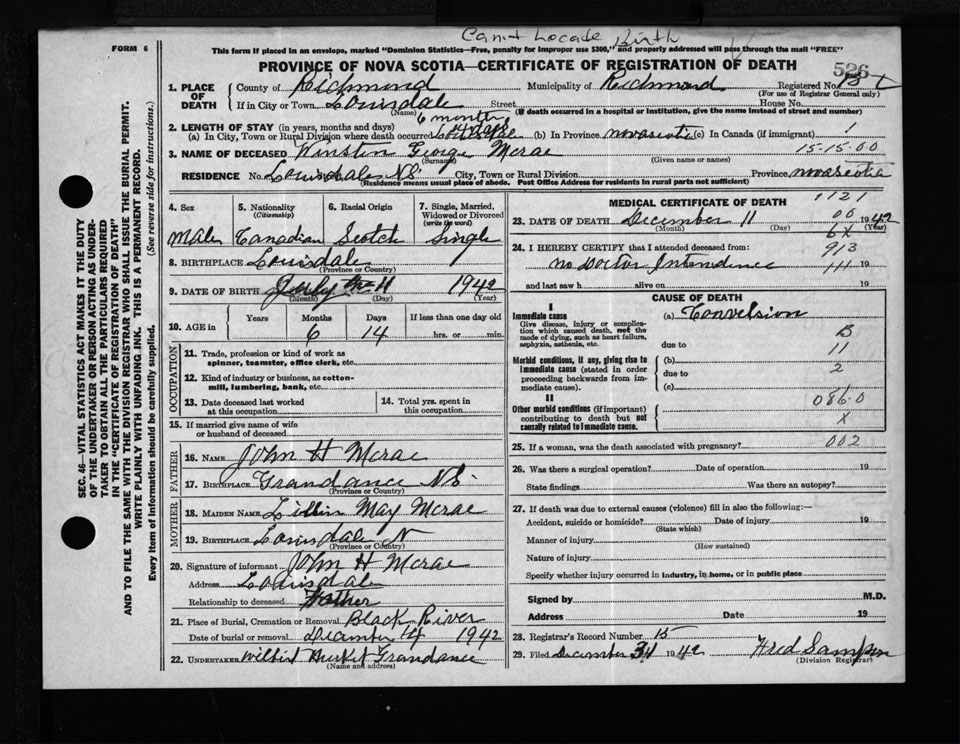 Can't Locade Birth
FORM 6
This form if placed in an envelope, marked "Dominion Statistics—Free, penalty for improper use $300," and properly addressed will pass through the mail "FREE"
PROVINCE OF NOVA SCOTIA—CERTIFICATE OF REGISTRATION OF DEATH
526
1. PLACE OF DEATH
County of Richmond Municipality of Richmond Registered No. 15
(For use of Registrar General only)
If in City or Town Louisdale Street House No.
(Name) (If death occurred in a hospital or institution, give the name instead of street and number)
6 month
2. LENGTH OF STAY (in years, months and days)
(a) In City, Town or Rural Division where death occurred 14 days (b) In Province novascotia (c) In Canada (if immigrant) 1
3. NAME OF DECEASED Winston George Mcrae 15-15-00
(Surname) (Given name or names)
RESIDENCE No. Louisdale NS City, Town or Rural Division Province novascotia
(Residence means usual place of abode. Post Office Address for residents in rural parts not sufficient)
4. Sex
Male
5. Nationality (Citizenship)
Canadian
6. Racial Origin
Scotch
7. Single, Married, Widowed or Divorced (write the word)
Single
8. BIRTHPLACE Louisdale
(Province or Country)
9. DATE OF BIRTH July 1942
(Month) (Day) (Year)
10. AGE in
Years Months Days If less than one day old
6 14 hrs. or min.
OCCUPATION
11. Trade, profession or kind of work as spinner, teamster, office clerk, etc.
12. Kind of industry or business, as cotton-mill, lumbering, bank, etc.
13. Date deceased last worked at this occupation
14. Total yrs. spent in this occupation
15. If married give name of wife or husband of deceased
FATHER
16. Name John H Mcrae
17. Birthplace Grandance NS
(Province or Country)
MOTHER
18. Maiden Name May Mcrae
19. Birthplace Louisdale N
(Province or Country)
20. Signature of informant John H Mcrae
Address Louisdale
Relationship to deceased Father
21. Place of Burial, Cremation or Removal Black River
Date of burial or removal December 14 1942
22. Undertaker Grandance
(Name and address)
MEDICAL CERTIFICATE OF DEATH
1121
23. DATE OF DEATH December 11 00 1942
(Month) (Day) (Year)
6X
24. I HEREBY CERTIFY that I attended deceased from: 913
no Doctor Intendence 111 19
and last saw h alive on 19
CAUSE OF DEATH
I
Immediate cause
Give disease, injury or complication which caused death, not the mode of dying, such as heart failure, asphyxia, asthenia, etc.
(a) Convelsion
B
due to 11
Morbid conditions, if any, giving rise to immediate cause (stated in order proceeding backwards from immediate cause).
(b) 2
due to
(c)
II
Other morbid conditions (if important) contributing to death but not causally related to immediate cause.
086.0
X
25. If a woman, was the death associated with pregnancy? 002
26. Was there a surgical operation? Date of operation 19
State findings Was there an autopsy?
27. If death was due to external causes (violence) fill in also the following:—
Accident, suicide or homicide? Date of injury 19
(State which)
Manner of injury
(How sustained)
Nature of injury
Specify whether injury occurred in industry, in home, or in public place
Signed by M.D.
Address Date 19
28. Registrar's Record Number 15
29. Filed December 31 1942 Fred Sampson
(Division Registrar)
SEC. 46—VITAL STATISTICS ACT MAKES IT THE DUTY
OF THE UNDERTAKER OR PERSON ACTING AS UNDER-
TAKER TO OBTAIN ALL THE PARTICULARS REQUIRED
IN THE "CERTIFICATE OF REGISTRATION OF DEATH"
AND TO FILE THE SAME WITH THE DIVISION REGISTRAR WHO SHALL ISSUE THE BURIAL PERMIT.
WRITE PLAINLY WITH UNFADING INK. THIS IS A PERMANENT RECORD.
Every item of information should be carefully supplied. (See reverse side for instructions.)